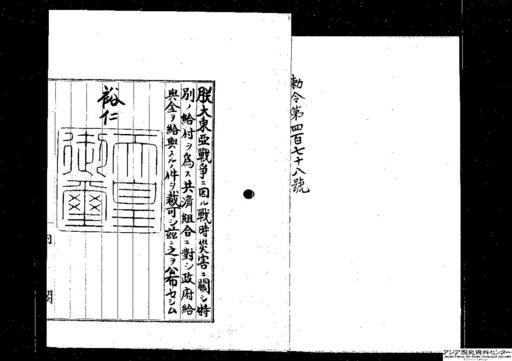 勅令第四百七十八號
朕大東亞戰爭ニ因ル戰時災害ニ關シ特
別ノ給付ヲ爲ス共濟組合ニ對シ政府給
與金ヲ給與スルノ件ヲ裁可シ茲ニ之ヲ公布セシム
裕仁
天皇
御璽
内閣
アジア歴史資料センター
Japan Center for Asian Historical Records